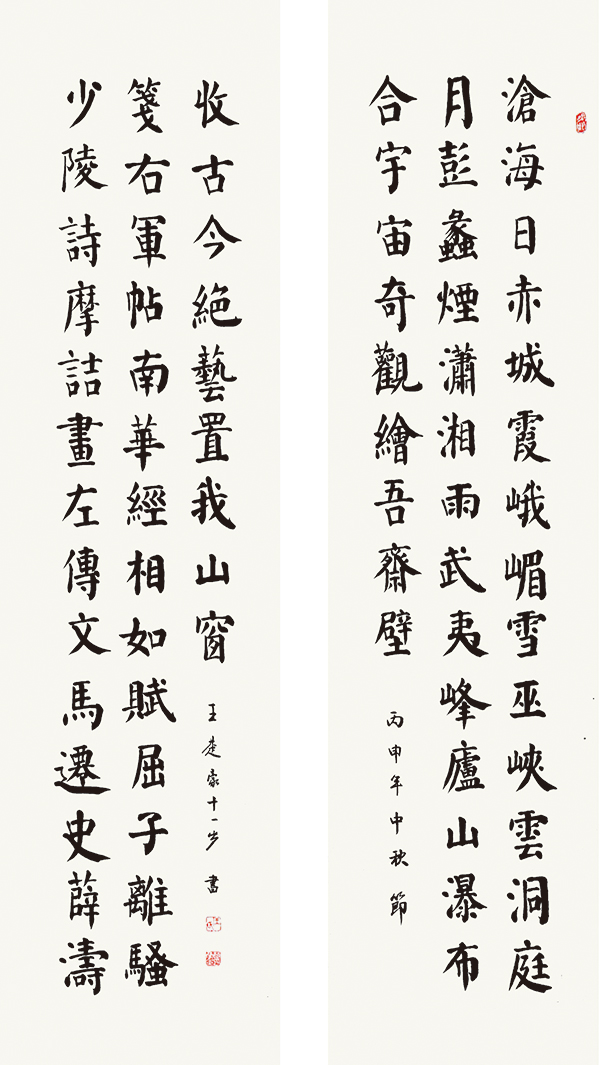 滄海日赤城霞峨嵋雪巫峽雲洞庭
月彭蠡煙瀟湘雨武夷峰廬山瀑布
合宇宙奇觀繪吾齋壁
丙申年中秋節
少陵詩摩詰畫左傳文馬遷史薛濤
箋右軍帖南華經相如賦屈子離騷
收古今絕藝置我山窗
王楚十一岁書